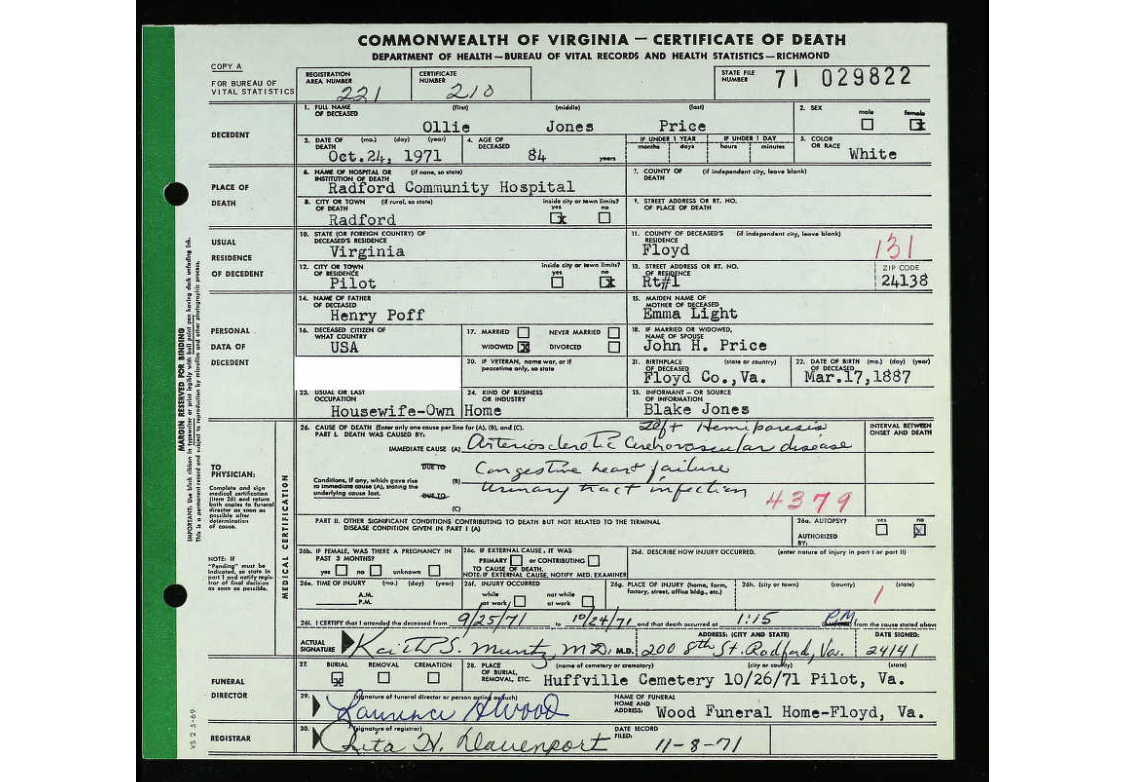 COMMONWEALTH OF VIRGINIA — CERTIFICATE OF DEATH
DEPARTMENT OF HEALTH—BUREAU OF VITAL RECORDS AND HEALTH STATISTICS—RICHMOND
COPY A
FOR BUREAU OF VITAL STATISTICS
REGISTRATION AREA NUMBER 221
CERTIFICATE NUMBER 210
STATE FILE NUMBER 71 029822
DECEDENT
1. FULL NAME OF DECEASED (first) (middle) (last)
Ollie Jones Price
2. SEX male female x
3. DATE OF DEATH (mo.) (day) (year)
Oct.24, 1971
4. AGE OF DECEASED 84 years
IF UNDER 1 YEAR months days
IF UNDER 1 DAY hours minutes
5. COLOR OR RACE White
PLACE OF DEATH
6. NAME OF HOSPITAL OR INSTITUTION OF DEATH (if none, so state)
Radford Community Hospital
7. COUNTY OF DEATH (if independent city, leave blank)
8. CITY OR TOWN OF DEATH (if rural, so state) inside city or town limits? yes x no
Radford
9. STREET ADDRESS OR RT. NO. OF PLACE OF DEATH
USUAL RESIDENCE OF DECEDENT
10. STATE (OR FOREIGN COUNTRY) OF DECEASED'S RESIDENCE
Virginia
11. COUNTY OF DECEASED'S RESIDENCE (if independent city, leave blank)
Floyd 131
12. CITY OR TOWN OF RESIDENCE inside city or town limits? yes no x
Pilot
13. STREET ADDRESS OR RT. NO. OF RESIDENCE
Rt#1
ZIP CODE 24138
PERSONAL DATA OF DECEDENT
14. NAME OF FATHER OF DECEASED
Henry Poff
15. MAIDEN NAME OF MOTHER OF DECEASED
Emma Light
16. DECEASED CITIZEN OF WHAT COUNTRY
USA
17. MARRIED NEVER MARRIED
WIDOWED X DIVORCED
18. IF MARRIED OR WIDOWED, NAME OF SPOUSE
John H. Price
20. IF VETERAN, name war, or if peacetime only, so state
21. BIRTHPLACE OF DECEASED (state or country)
Floyd Co.,Va.
22. DATE OF BIRTH OF DECEASED (mo.) (day) (year)
Mar.17,1887
23. USUAL OR LAST OCCUPATION
Housewife-Own Home
24. KIND OF BUSINESS OR INDUSTRY
25. INFORMANT – OR SOURCE OF INFORMATION
Blake Jones
MARGIN RESERVED FOR BINDING
TO PHYSICIAN:
Complete and sign medical certification (item 26) and return both copies to funeral director as soon as possible after determination of cause.
NOTE: IF "Pending" must be indicated, so state in part I and notify registrar of final decision as soon as possible.
MEDICAL CERTIFICATION
26. CAUSE OF DEATH (Enter only one cause per line for (A), (B), and (C).
PART I. DEATH WAS CAUSED BY:
INTERVAL BETWEEN ONSET AND DEATH
Left Hemiparesis
IMMEDIATE CAUSE (A) Arteriosclerotic Cerebrovascular disease
DUE TO
Conditions, if any, which gave rise to immediate cause (A), stating the underlying cause last.
(B) Congestive heart failure
DUE TO
Urinary tract infection
(C)
4379
PART II. OTHER SIGNIFICANT CONDITIONS CONTRIBUTING TO DEATH BUT NOT RELATED TO THE TERMINAL DISEASE CONDITION GIVEN IN PART I (A)
26a. AUTOPSY? yes no x
AUTHORIZED BY:
26b. IF FEMALE, WAS THERE A PREGNANCY IN PAST 3 MONTHS?
yes no unknown
26c. IF EXTERNAL CAUSE, IT WAS
PRIMARY or CONTRIBUTING
TO CAUSE OF DEATH.
NOTE: IF EXTERNAL CAUSE, NOTIFY MED. EXAMINER
26d. DESCRIBE HOW INJURY OCCURRED. (enter nature of injury in part I or part II)
26e. TIME OF INJURY (mo.) (day) (year)
A.M.
P.M.
26f. INJURY OCCURRED
while at work not while at work
26g. PLACE OF INJURY (home, farm, factory, street, office bldg., etc.)
26h. (city or town) (county) (state)
1
26i. I CERTIFY that I attended the deceased from 9/25/71 to 10/24/71 and that death occurred at 1:15 P.M. from the cause stated above
ACTUAL SIGNATURE Keith S. Muntz, M.D. M.D.
ADDRESS: (CITY AND STATE)
200 8th St. Radford, Va.
DATE SIGNED:
24141
FUNERAL DIRECTOR
27. BURIAL x REMOVAL CREMATION
28. PLACE OF BURIAL, REMOVAL, ETC. (name of cemetery or crematory) (city or county) (state)
Huffville Cemetery 10/26/71 Pilot, Va.
29. (signature of funeral director or person acting as such)
NAME OF FUNERAL HOME AND ADDRESS:
Wood Funeral Home-Floyd, Va.
REGISTRAR
30. (signature of registrar)
Rita H. Davenport
DATE RECORD FILED: 11-8-71
VS 2 5-69